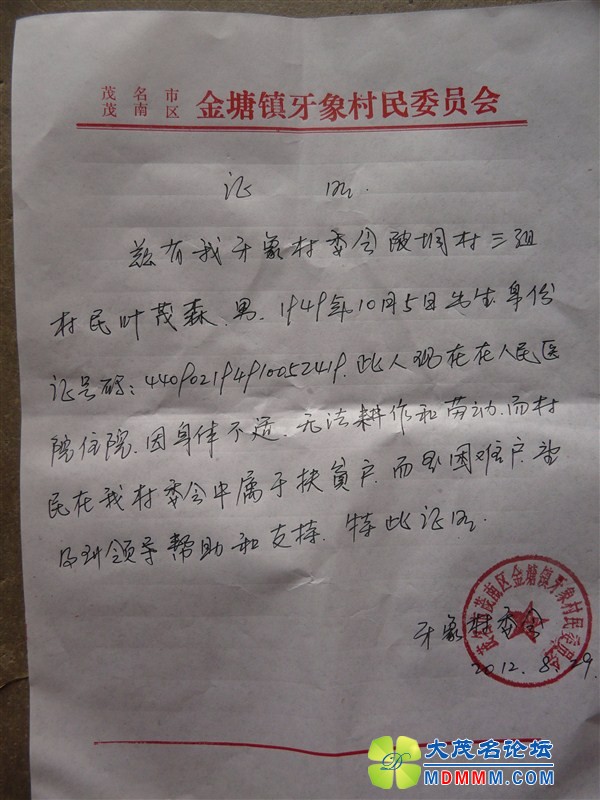 茂名市
茂南区 金塘镇牙象村民委员会
证 明.
兹有我牙象村委会陂垌村三组
村民叶茂森、男、1949年10月5日出生身份
证号码:440902194910052419.此人现在在人民医
院住院、因身体不适、无法耕作和劳动.而村
民在我村委会中属于扶贫户.而且困难户.望
得到领导帮助和支持、特此证明.
牙象村委会
2012.8.29.
茂名市茂南区金塘镇牙象村民委员会
大茂名论坛
MDMMM.COM